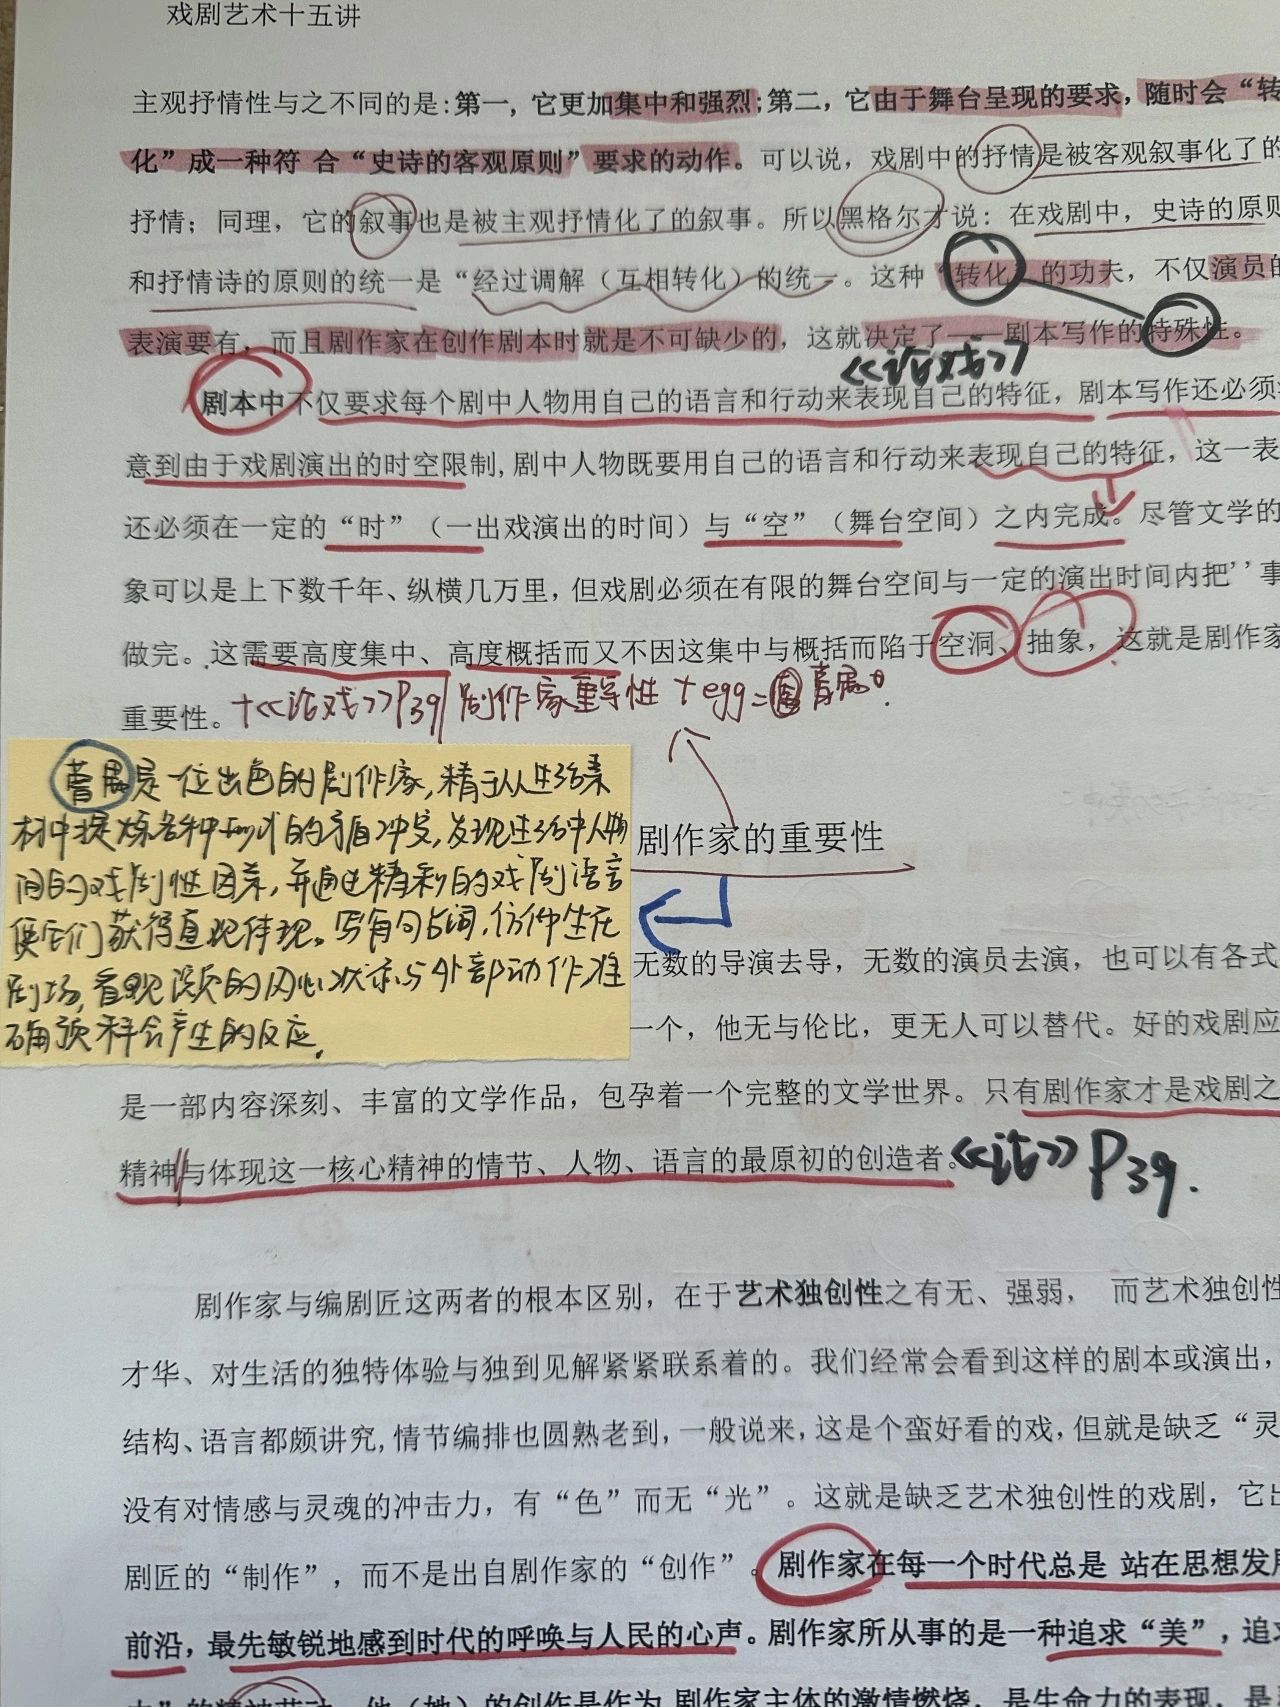 戏剧艺术十五讲
主观抒情性与之不同的是:第一,它更加集中和强烈;第二,它由于舞台呈现的要求,随时会“转
化”成一种符 合“史诗的客观原则”要求的动作。可以说,戏剧中的抒情是被客观叙事化了的
抒情；同理，它的叙事也是被主观抒情化了的叙事。所以黑格尔才说：在戏剧中，史诗的原则
和抒情诗的原则的统一是“经过调解（互相转化）的统一。这种“转化”的功夫，不仅演员的
表演要有，而且剧作家在创作剧本时就是不可缺少的，这就决定了——剧本写作的特殊性。
《论戏》
剧本中不仅要求每个剧中人物用自己的语言和行动来表现自己的特征，剧本写作还必须
意到由于戏剧演出的时空限制,剧中人物既要用自己的语言和行动来表现自己的特征，这一表
还必须在一定的“时”（一出戏演出的时间）与“空”（舞台空间）之内完成。尽管文学的
象可以是上下数千年、纵横几万里，但戏剧必须在有限的舞台空间与一定的演出时间内把’’事
做完。这需要高度集中、高度概括而又不因这集中与概括而陷于空洞、抽象，这就是剧作家
重要性。+《论戏》P39 剧作家重要性 + egg=曹禺
曹禺是一位出色的剧作家,精于从生活素
材中提炼各种形式的矛盾冲突,发现生活中人物
间的戏剧性因素,并通过精彩的戏剧语言
使它们获得直观体现。写每句台词,仿佛坐在
剧场,观众的内心状态与外部动作准
确预料会产生的反应.
剧作家的重要性
无数的导演去导，无数的演员去演，也可以有各式
一个，他无与伦比，更无人可以替代。好的戏剧应
是一部内容深刻、丰富的文学作品，包孕着一个完整的文学世界。只有剧作家才是戏剧之
精神与体现这一核心精神的情节、人物、语言的最原初的创造者。《论》P39.
剧作家与编剧匠这两者的根本区别，在于艺术独创性之有无、强弱， 而艺术独创性
才华、对生活的独特体验与独到见解紧紧联系着的。我们经常会看到这样的剧本或演出，
结构、语言都颇讲究,情节编排也圆熟老到,一般说来,这是个蛮好看的戏,但就是缺乏“灵
没有对情感与灵魂的冲击力，有“色”而无“光”。这就是缺乏艺术独创性的戏剧，它出
剧匠的“制作”，而不是出自剧作家的“创作”。剧作家在每一个时代总是 站在思想发展
前沿，最先敏锐地感到时代的呼唤与人民的心声。剧作家所从事的是一种追求“美”，追求
的精神劳动。他（她）的创作是作为 剧作家主体的激情燃烧，是生命力的表现，是